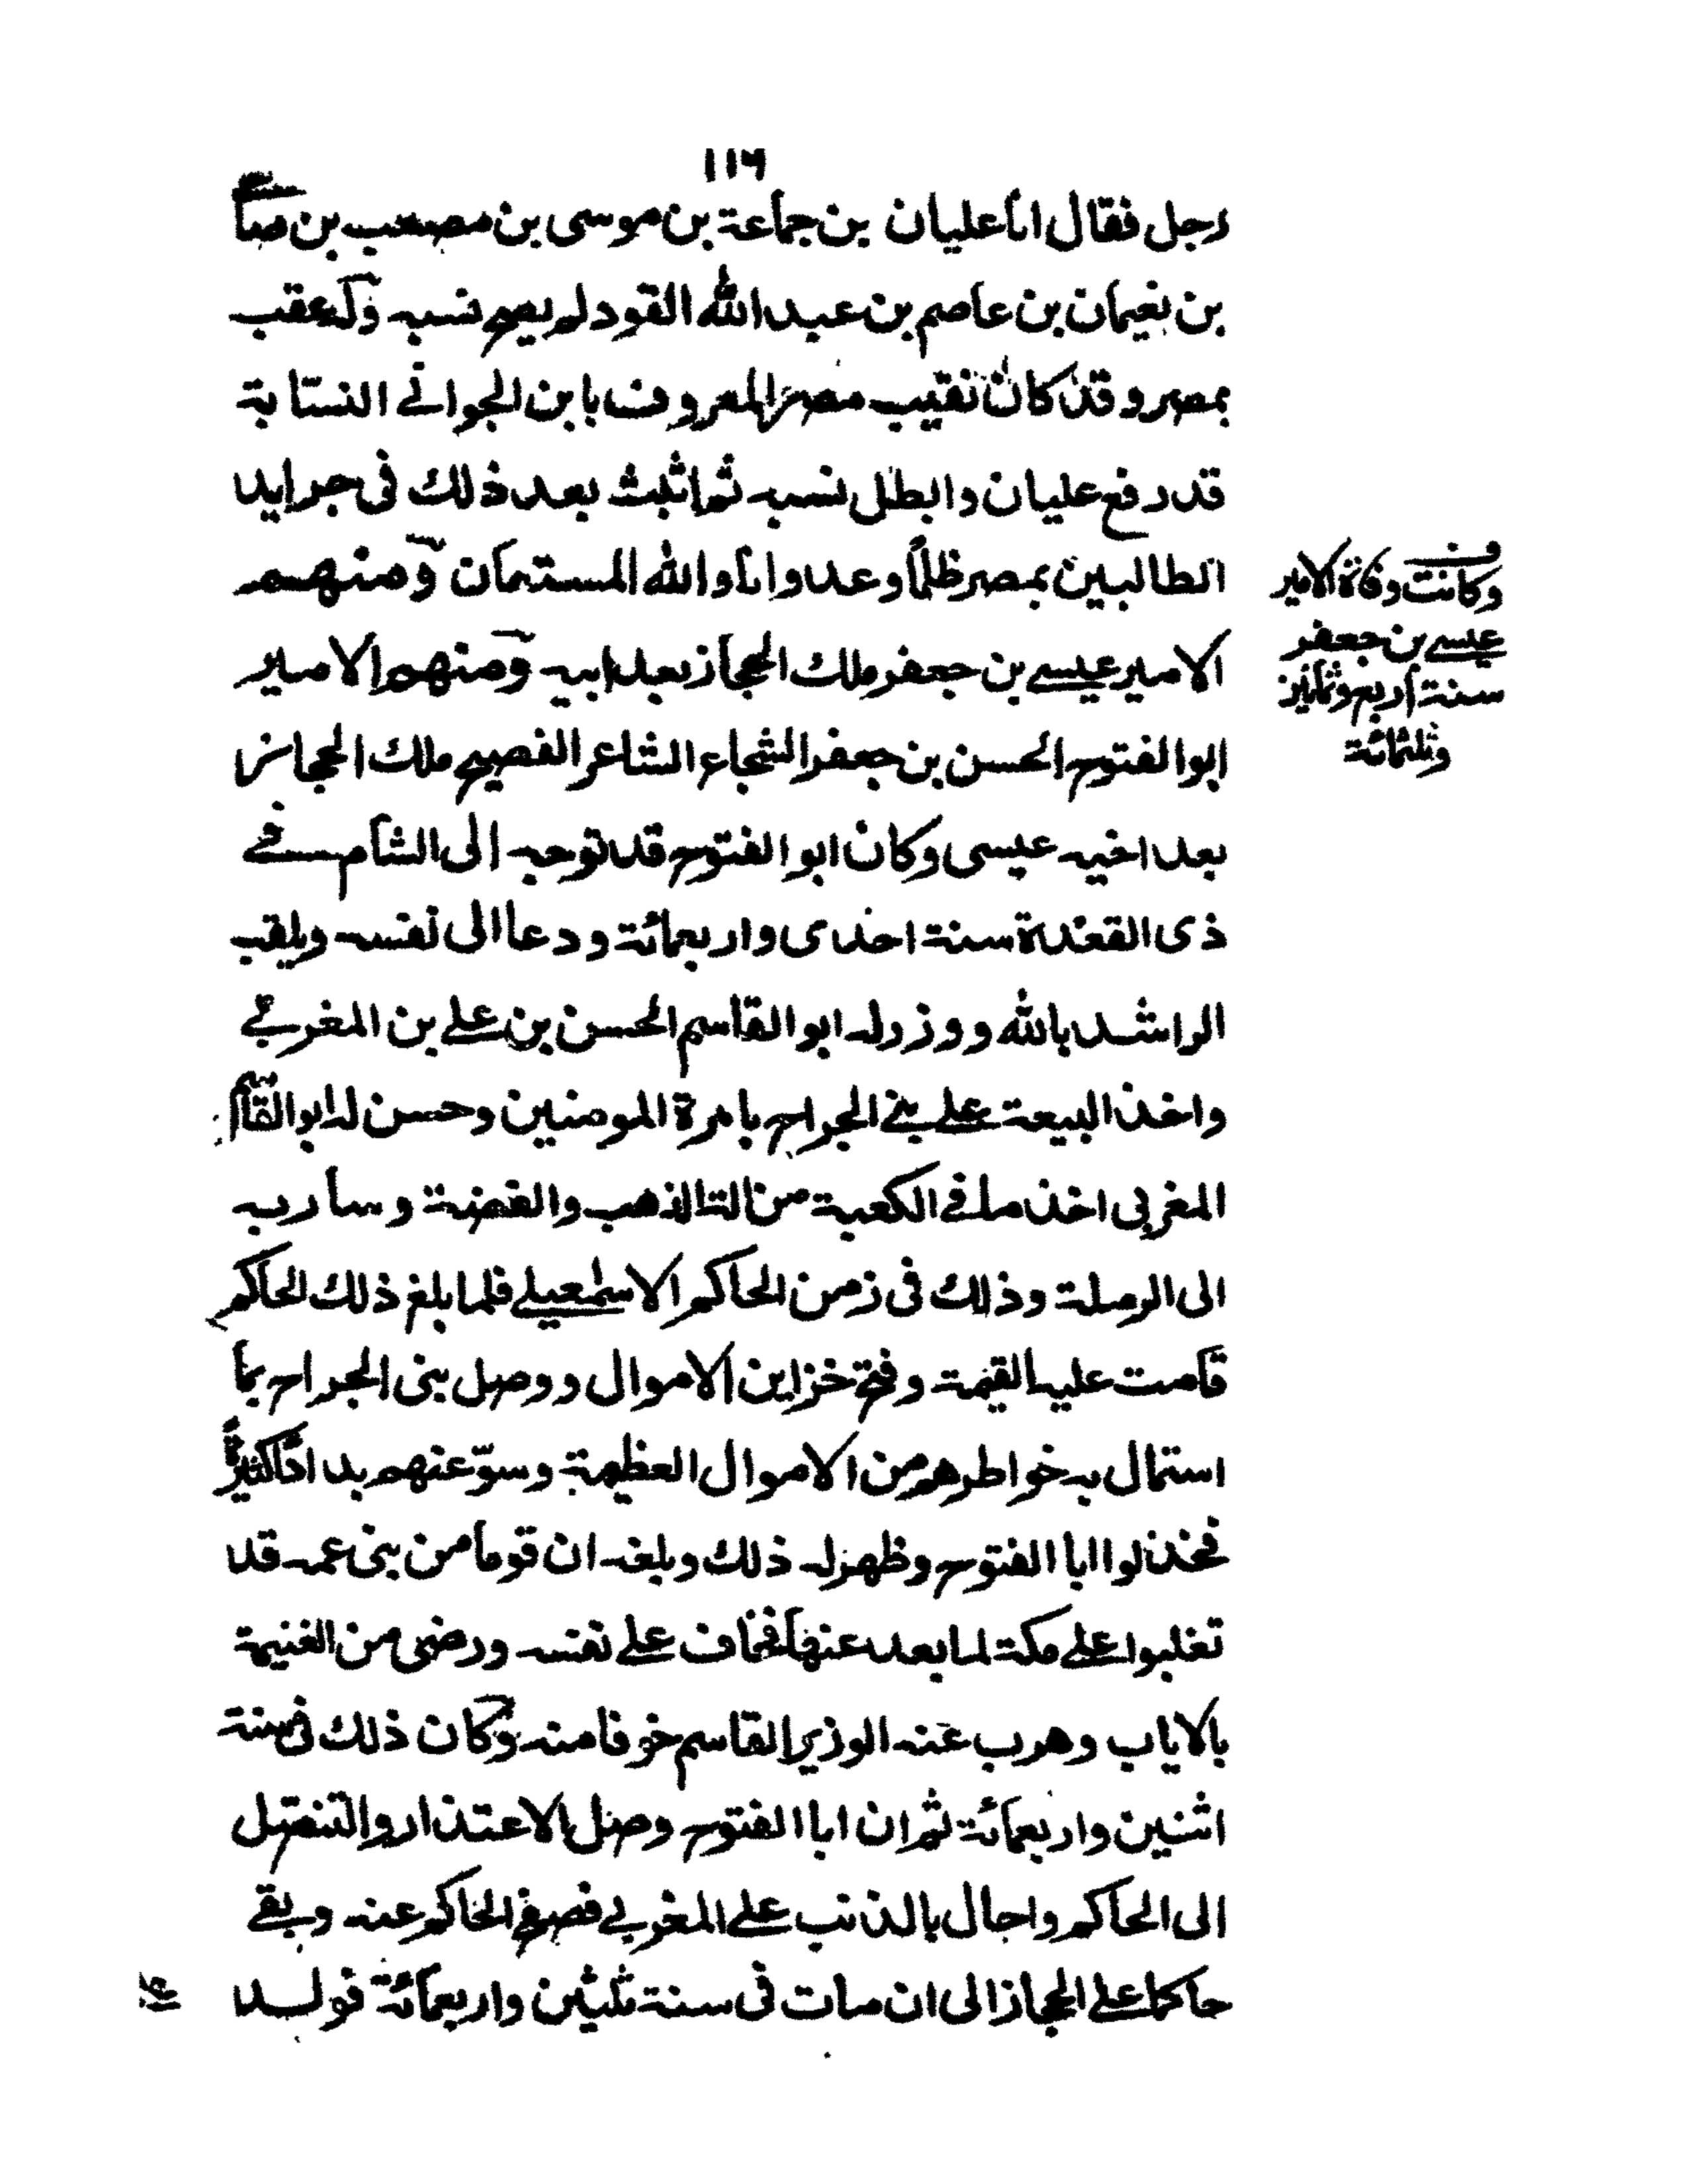 ١١٦
رجل فقال انا عليان بن جماعة بن موسى بن مصعب بن ضيا
بن نعيمان بن عاصم بن عبد الله القود لم يصح نسبه وله عقب
بمصر وقد كان نقيب مصر المعروف بابن الجوانے النسّابة
قد رفع عليان وابطل نسبه ثم اثبت بعد ذلك فى جرايد
الطالبين بمصر ظلمًا وعدوانا والله المستعان ومنهم
الامير عيسے بن جعفر ملك الحجاز بعد ابيه ومنهم الامير
ابو الفتوح الحسن بن جعفر الشجاع الشاعر الفصيح ملك الحجاز
بعد اخيه عيسى وكان ابو الفتوح قد توجه الى الشام فے
ذى القعدة سنة احدى واربعمائة ودعا الى نفسه ويلقب
الراشد بالله ووزر له ابو القاسم الحسن بن علے بن المغربے
واخذ البيعة علے بنے الجراح بامرة المومنين وحسن له ابو القاسم
المغربى اخذ ما فے الكعبة من الة الذهب والفضة وسار به
الى الرملة وذلك فى زمن الحاكم الاسمعيلے فلما بلغ ذلك الحاكم
قامت عليه القيمة وفتح خزاين الاموال ووصل بنى الجراح بما
استمال به خواطرهم من الاموال العظيمة وسوّغهم بلادًا كثيرةً
فخذلوا ابا الفتوح وظهر له ذلك وبلغه ان قوما من بنى عمه قد
تغلبوا علے مكة لما بعد عنها فخاف علے نفسه ورضى من الغنيمة
بالاياب وهرب عنه الوزير القاسم خوفا منه وكان ذلك فى سنة
اثنين واربعمائة ثم ان ابا الفتوح وصل الاعتذار والتنصل
الى الحاكم واحال بالذنب علے المغربے فصفح الحاكم عنه وبقے
حاكما علے الحجاز الى ان مات فى سنة ثلثين واربعمائة فولد
وكانت وفاة الامير
عيسے بن جعفر
سنة اربع وثمانين
وثلثمائة